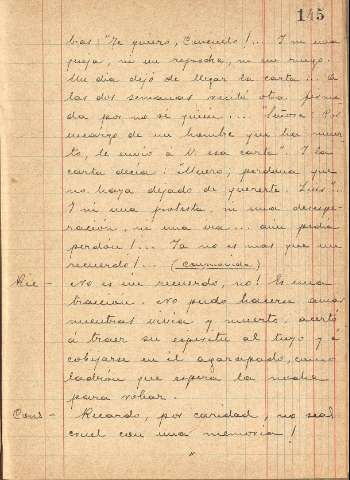 145
bas: "Te quiero, Consuelo!... Ni una
queja, ni un reproche, ni un ruego.
Un dia dejó de llegar la carta... A
las dos semanas recibí otra firma-
da por no se quien... "Señora: Por
encargo de un hombre que ha muer-
to, le envio á V. esa carta". I la
carta decia: "Muero, perdona que
no haya dejado de quererte. Luis"..
Ni una protesta, ni una desespe-
ración, ni una ... aun pedia
perdon!... Ya no es mas que un
recuerdo!... (Conmovida)
Ric - No es un recuerdo, no! Es una
traicion. No pudo hacerse amar
mientras vivia y muerto, acertó
á traer su espiritu al tuyo y á
cobijarse en él agazapado, como
ladrón que espera la noche
para robar.
Cons - Ricardo, por caridad, no seas
cruel con una memoria!